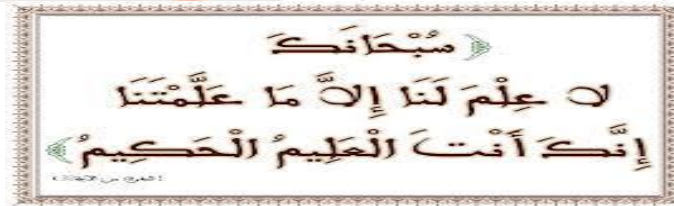 ﴿ سُبْحَانَكَ
لَا عِلْمَ لَنَا إِلَّا مَا عَلَّمْتَنَا
إِنَّكَ أَنْتَ الْعَلِيمُ الْحَكِيمُ ﴾